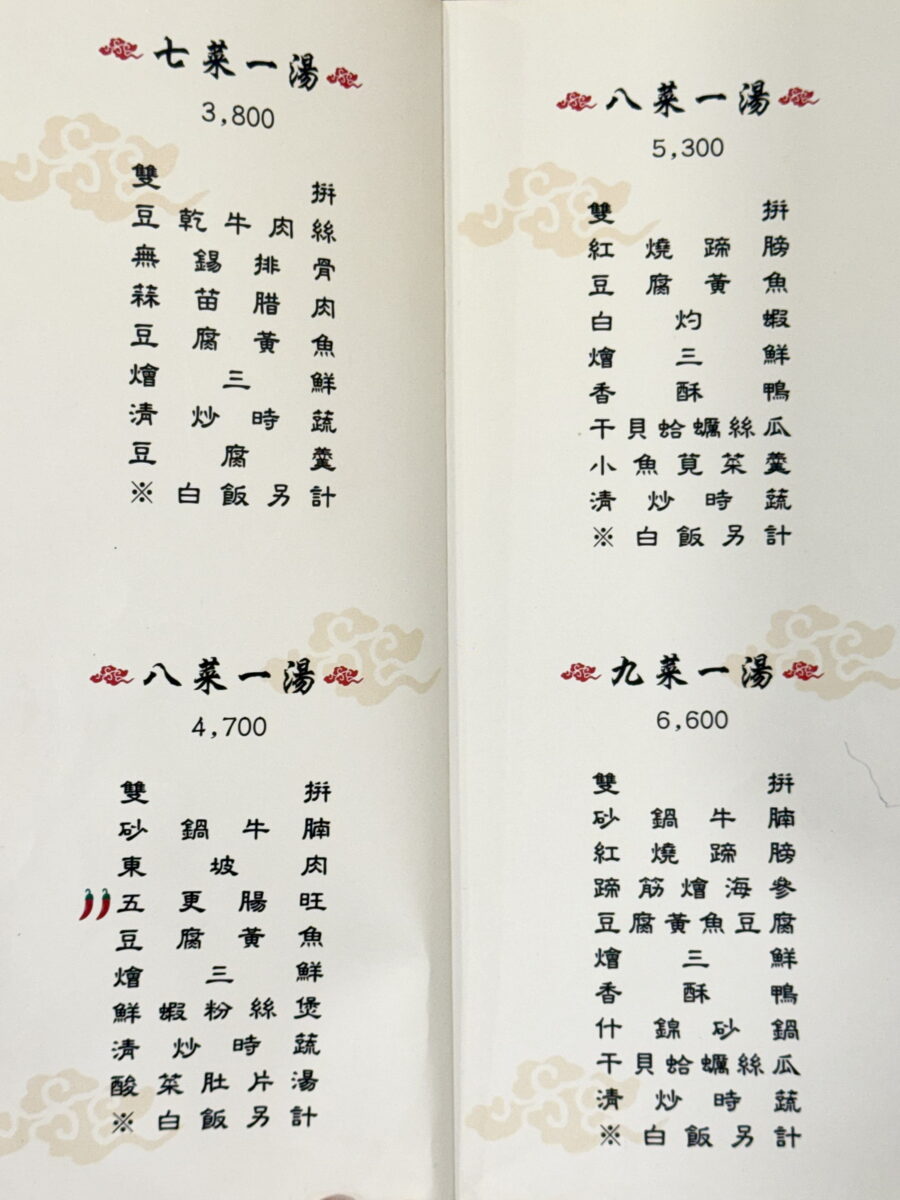 七菜一湯
3,800
雙拼
豆乾牛肉絲
無錫排骨
蒜苗腊肉
豆腐黃魚
燴三鮮
清炒時蔬
豆腐羹
※白飯另計
八菜一湯
4,700
雙拼
砂鍋牛腩
東坡肉
五更腸旺
豆腐黃魚
燴三鮮
鮮蝦粉絲煲
清炒時蔬
酸菜肚片湯
※白飯另計
八菜一湯
5,300
雙拼
紅燒蹄膀
豆腐黃魚
白灼蝦
燴三鮮
香酥鴨
干貝蛤蠣絲瓜
小魚莧菜羹
清炒時蔬
※白飯另計
九菜一湯
6,600
雙拼
砂鍋牛腩
紅燒蹄膀
蹄筋燴海參
豆腐黃魚豆腐
燴三鮮
香酥鴨
什錦砂鍋
干貝蛤蠣絲瓜
清炒時蔬
※白飯另計